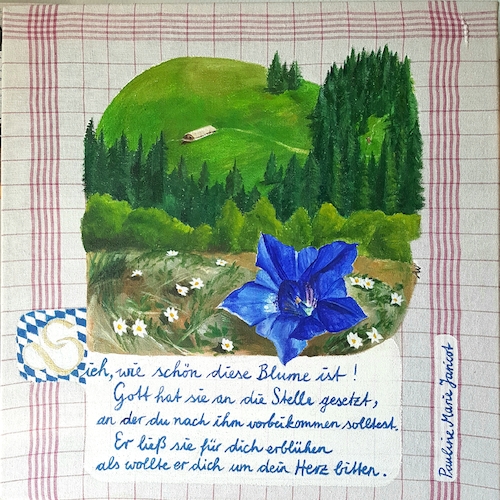 Sieh, wie schön diese Blume ist!
Gott hat sie an die Stelle gesetzt,
an der du nach ihm vorbeikommen solltest.
Er ließ sie für dich erblühen
als wollte er dich um dein Herz bitten.
Pauline Marie Jaricot